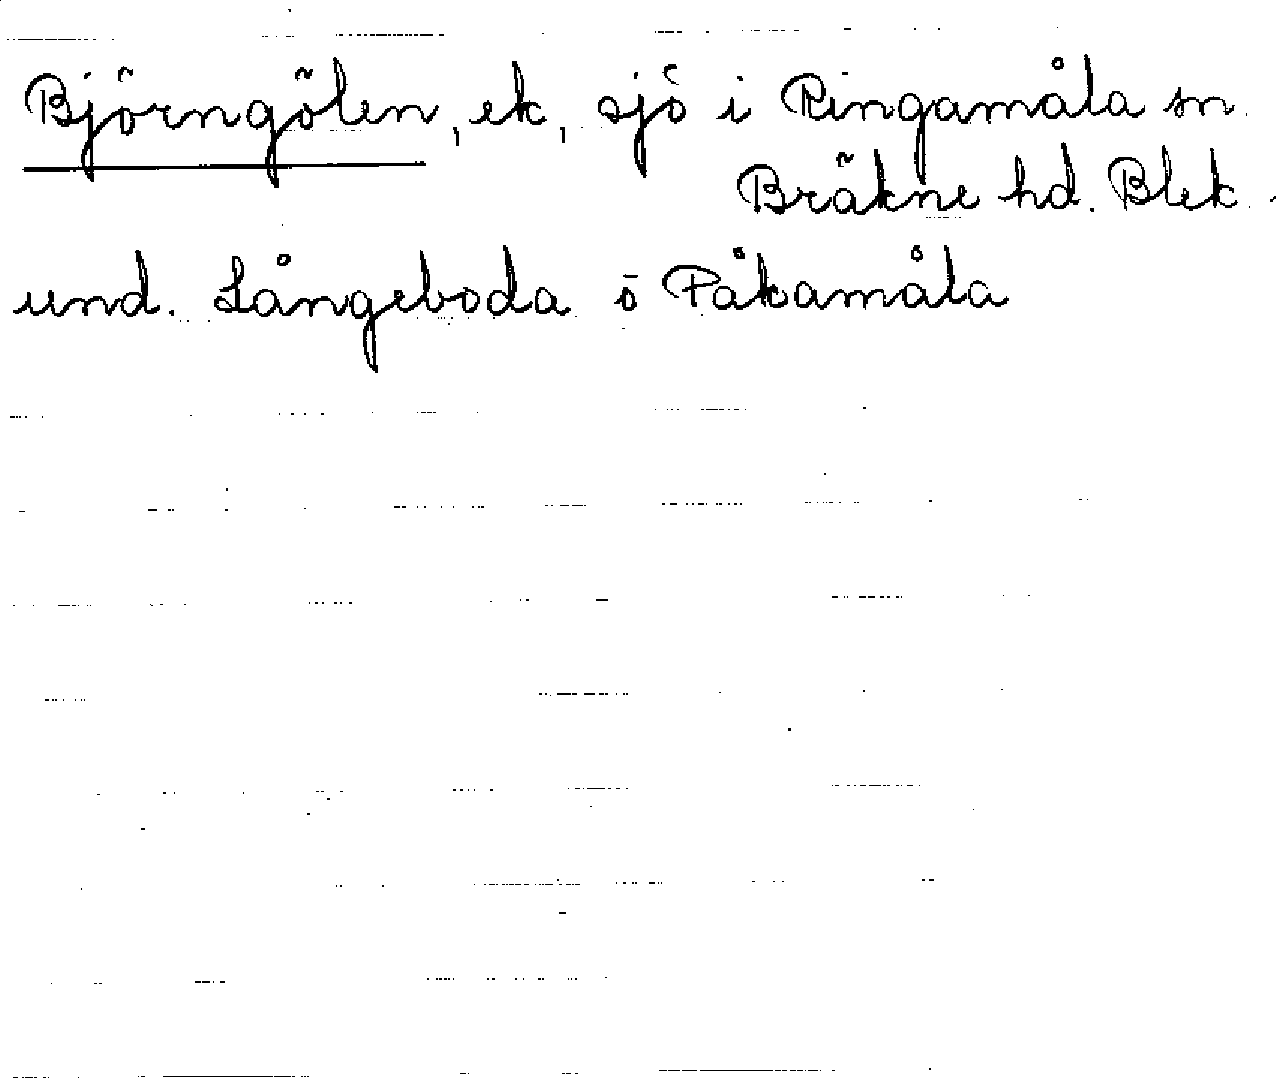 Björngölen, ek, sjö i Ringamåla sn.
Bräkne hd. Blek.
und. Långeboda o Påkamåla